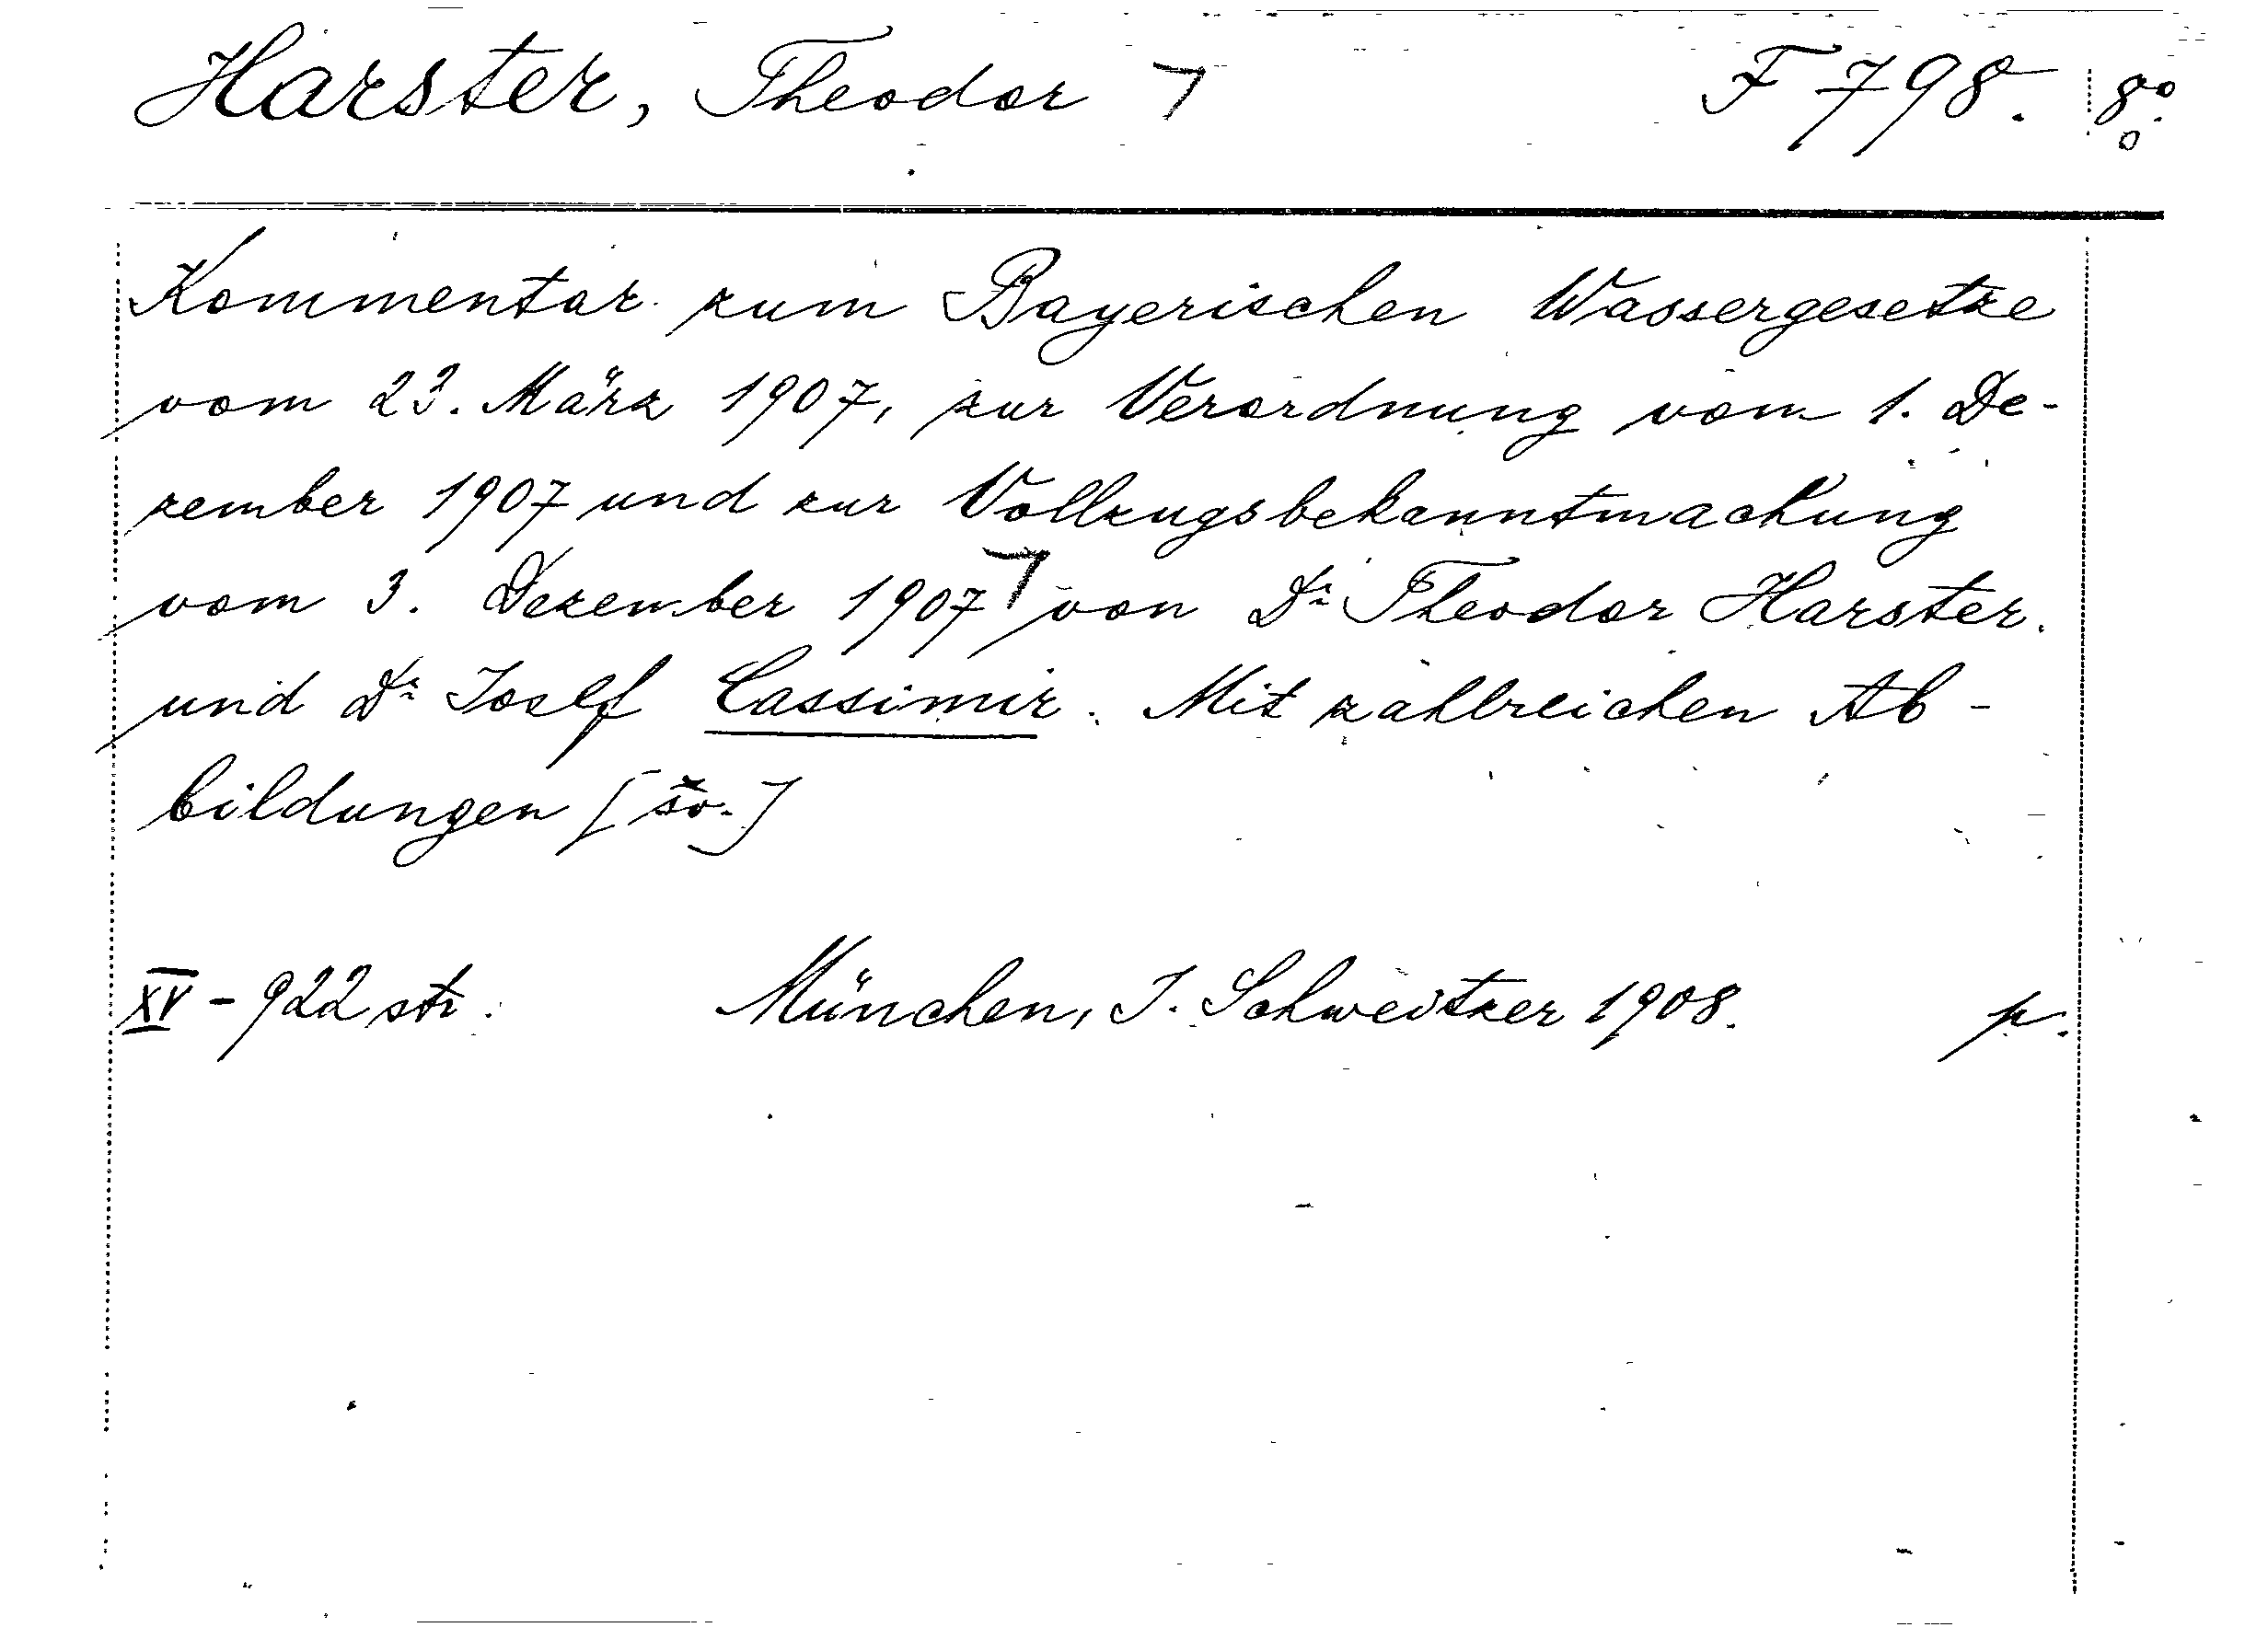 Harster, Theodor ⁊ F 798. 8°
Kommentar zum Bayerischen Wassergesetze
vom 23. März 1907, zur Verordnung vom 1. De-
zember 1907 und zur Vollzugsbekanntmachung
vom 3. Dezember 1907 ⁊ von Dr Theodor Harster.
und Dr Josef Cassimir. Mit zahlreichen Ab-
bildungen [šv.]
XV - 922 str. München, J. Schweitzer 1908. p.